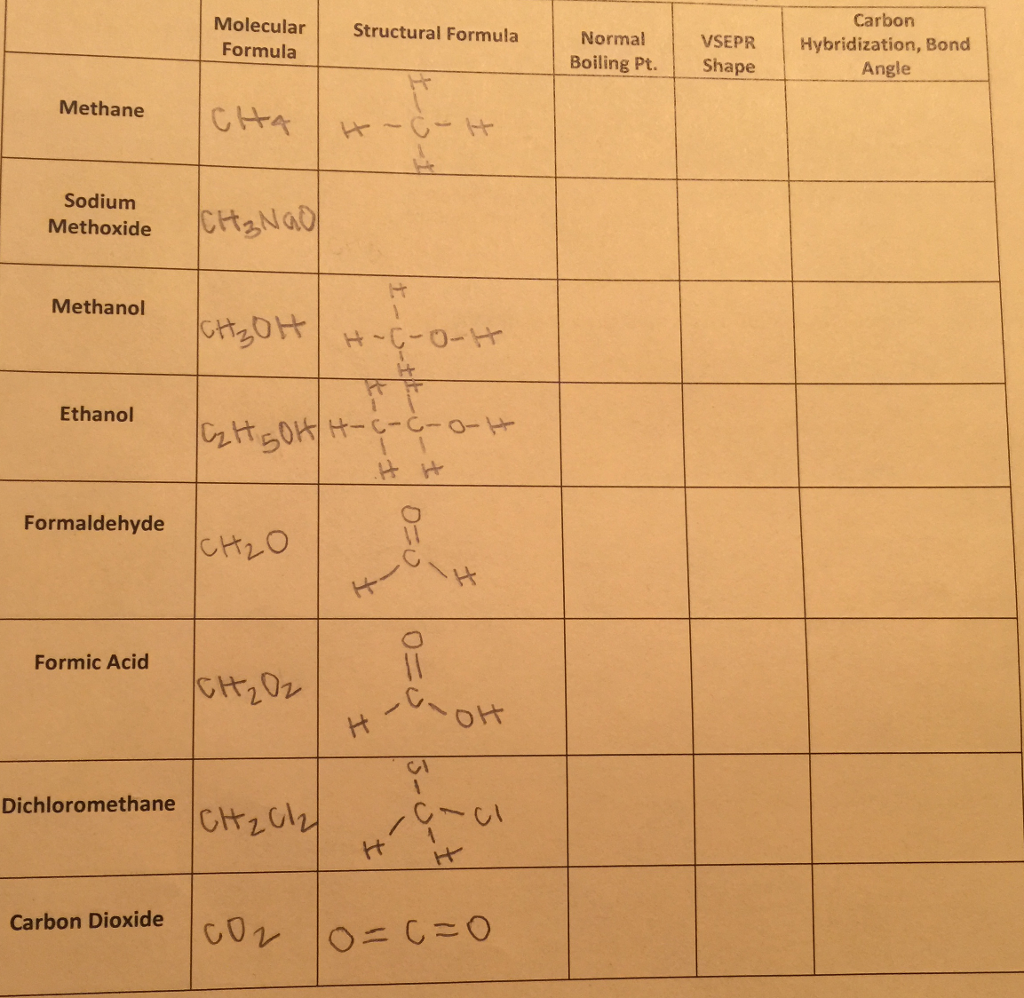 Molecular Formula
Structural Formula
Normal Boiling Pt.
VSEPR Shape
Carbon Hybridization, Bond Angle
Methane
CH4
H
H - C - H
H
Sodium Methoxide
CH3NaO
Methanol
CH3OH
H
H - C - O - H
H
Ethanol
C2H5OH
H H
H - C - C - O - H
H H
Formaldehyde
CH2O
O
||
C
H H
Formic Acid
CH2O2
O
||
C
H OH
Dichloromethane
CH2Cl2
Cl
C - Cl
H H
Carbon Dioxide
CO2
O = C = O